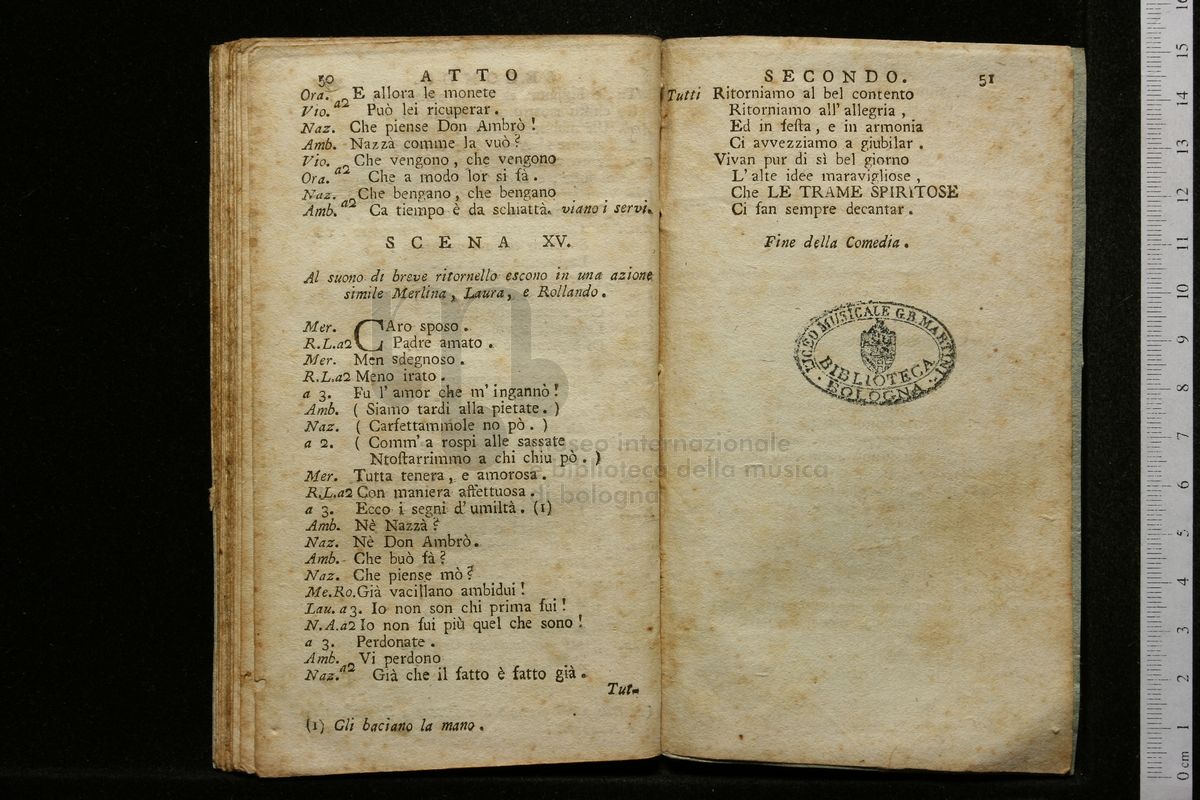 50 ATTO
Ora. E allora le monete
Vio. a2 Può lei ricuperar.
Naz. Che piense Don Ambrò!
Amb. Nazzà comme la vuò?
Vio. Che vengono, che vengono
Ora. a2 Che a modo lor si fà.
Naz. Che bengano, che bengano
Amb. a2 Ca tiempo è da schiattà. viano i servi.
SCENA XV.
Al suono di breve ritornello escono in una azione
simile Merlina, Laura, e Rollando.
Mer. CAro sposo.
R.L.a2 Padre amato.
Mer. Men sdegnoso.
R.L.a2 Meno irato.
a 3. Fu l'amor che m'ingannò!
Amb. ( Siamo tardi alla pietate. )
Naz. ( Carfettammole no pò. )
a 2. ( Comm' a rospi alle sassate
Ntostarrimmo a chi chiu pò. )
Mer. Tutta tenera, e amorosa.
R.L.a2 Con maniera affettuosa.
a 3. Ecco i segni d'umiltà. (1)
Amb. Nè Nazzà?
Naz. Nè Don Ambrò.
Amb. Che buò fà?
Naz. Che piense mò?
Me.Ro. Già vacillano ambidui!
Lau. a 3. Io non son chi prima fui!
N.A.a2 Io non fui più quel che sono!
a 3. Perdonate.
Amb. Vi perdono
Naz. a2 Già che il fatto è fatto già.
Tut-
(1) Gli baciano la mano.
SECONDO. 51
Tutti Ritorniamo al bel contento
Ritorniamo all'allegria,
Ed in festa, e in armonia
Ci avvezziamo a giubilar.
Vivan pur di sì bel giorno
L'alte idee maravigliose,
Che LE TRAME SPIRITOSE
Ci fan sempre decantar.
Fine della Comedia.
LICEO MUSICALE G.B. MARTINI
BIBLIOTECA
BOLOGNA
museo internazionale
e biblioteca della musica
di bologna
0 cm 1 2 3 4 5 6 7 8 9 10 11 12 13 14 15 16